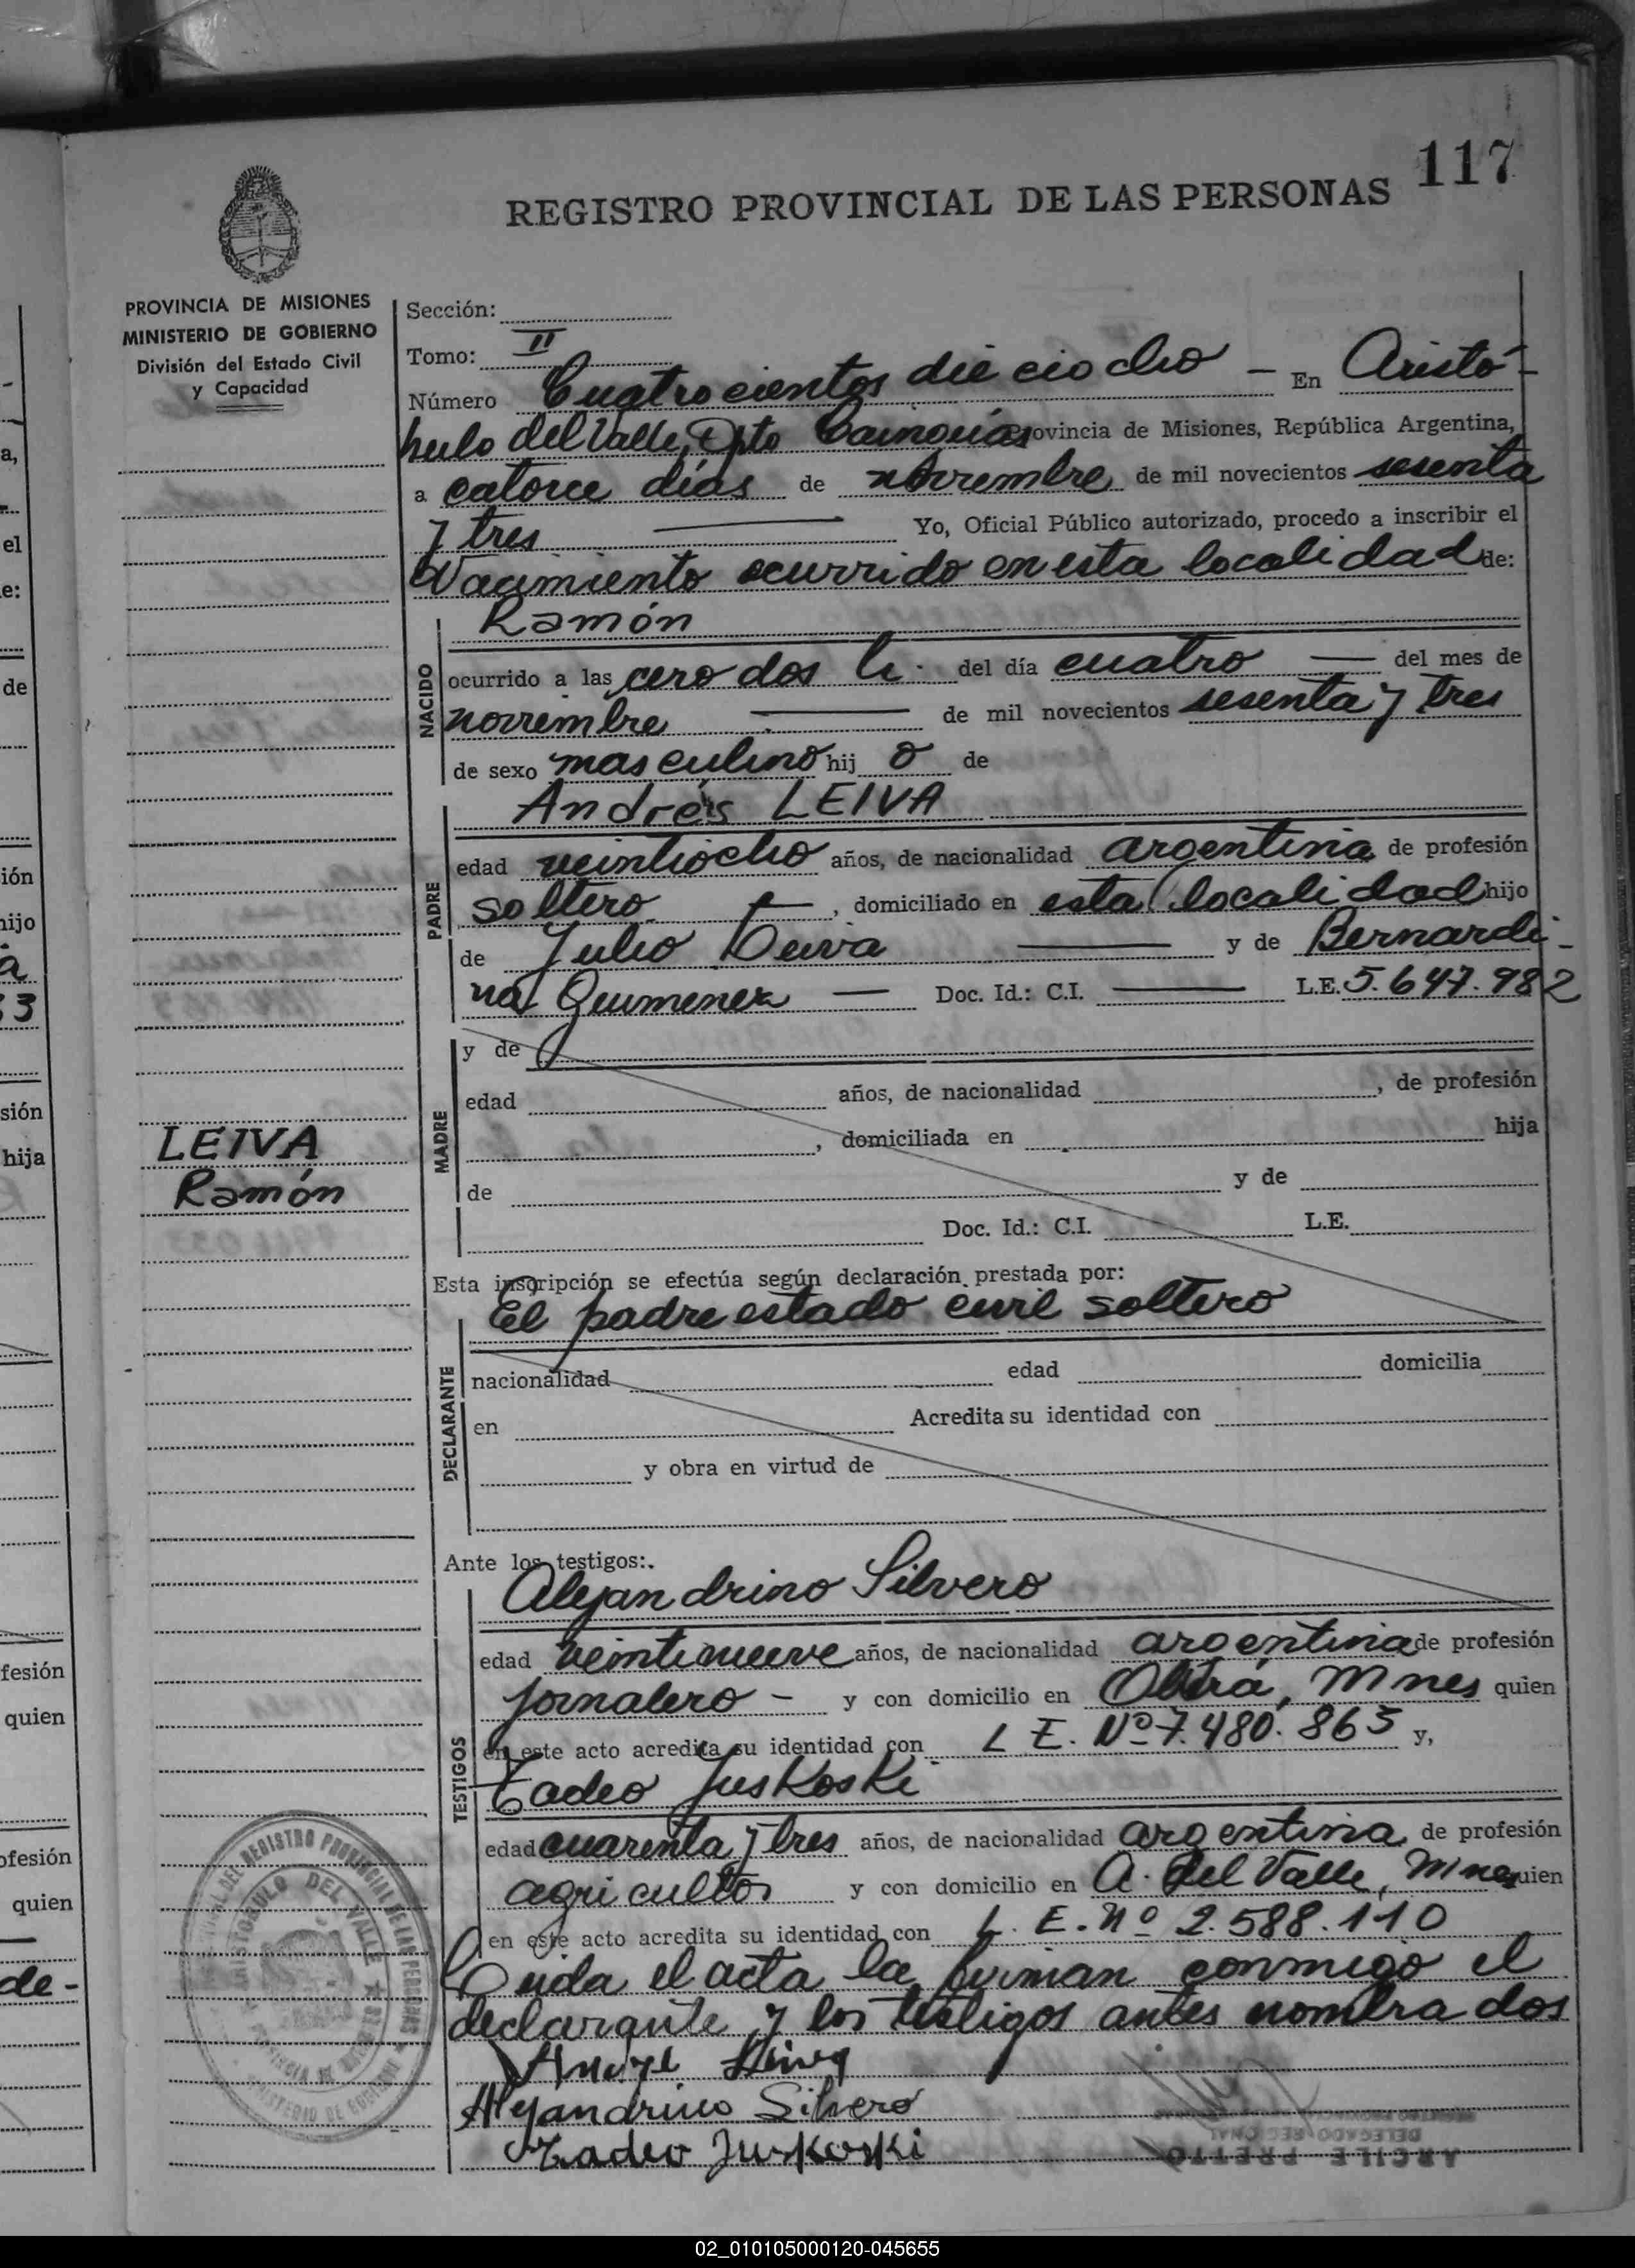 117
REGISTRO PROVINCIAL DE LAS PERSONAS
PROVINCIA DE MISIONES
MINISTERIO DE GOBIERNO
División del Estado Civil
y Capacidad
Sección:
Tomo: II
Número Cuatrocientos dieciocho — En Aristó-
bulo del Valle, Dpto Cainguás provincia de Misiones, República Argentina,
a catorce días de noviembre de mil novecientos sesenta
y tres — Yo, Oficial Público autorizado, procedo a inscribir el
Nacimiento ocurrido en esta localidad de:
NACIDO
Ramón
ocurrido a las cero dos h. del día cuatro — del mes de
noviembre — de mil novecientos sesenta y tres
de sexo masculino hij o de
PADRE
Andrés LEIVA
edad veintiocho años, de nacionalidad argentina de profesión
soltero — , domiciliado en esta localidad hijo
de Julio Leiva — y de Bernardi-
na Guimenez — Doc. Id.: C.I. — L.E. 5.647.982
MADRE
y de
edad años, de nacionalidad , de profesión
, domiciliada en hija
de y de
Doc. Id.: C.I. L.E.
LEIVA
Ramón
Esta inscripción se efectúa según declaración prestada por:
El padre estado civil soltero
DECLARANTE
nacionalidad edad domicilia
en Acredita su identidad con
y obra en virtud de
Ante los testigos:
TESTIGOS
Alejandrino Silvero
edad veintinueve años, de nacionalidad argentina de profesión
jornalero — y con domicilio en Oberá, Mnes quien
en este acto acredita su identidad con L E. Nº 7.480.865 y,
Tadeo Juskoski
edad cuarenta y tres años, de nacionalidad argentina de profesión
agricultor y con domicilio en A. del Valle, Mnes quien
en este acto acredita su identidad con L. E. Nº 2.588.110
Leida el acta la firman conmigo el
declarante y los testigos antes nombrados
Leiva
Alejandrino Silvero
Tadeo Juskoski
ARCILE PRETTO
DELEGADO REGIONAL
ARISTOBULO DEL VALLE
02_010105000120-045655